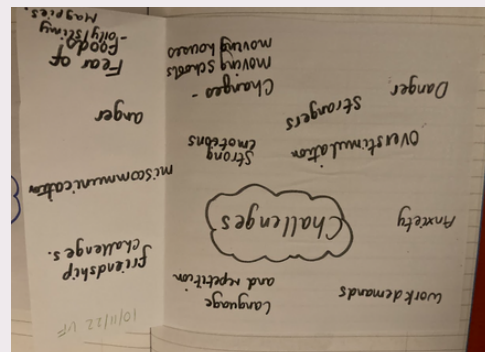 10/11/22 VF
Work demands
Language
and repetition
friendship
challenges.
Anxiety
Challenges
miscommunication
Overstimulation
Strong
emotions
Strangers
anger
Danger
Changes -
moving schools
moving houses
Fear of
Foods
-oily/slimy
Magpies.